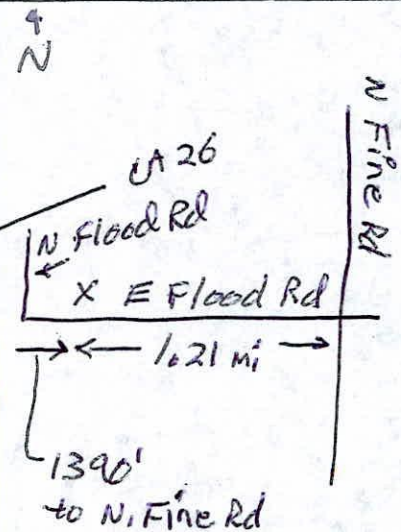 N
CA 26
N Fine Rd
N Flood Rd
X E Flood Rd
1.21 mi
1390'
to N. Fine Rd